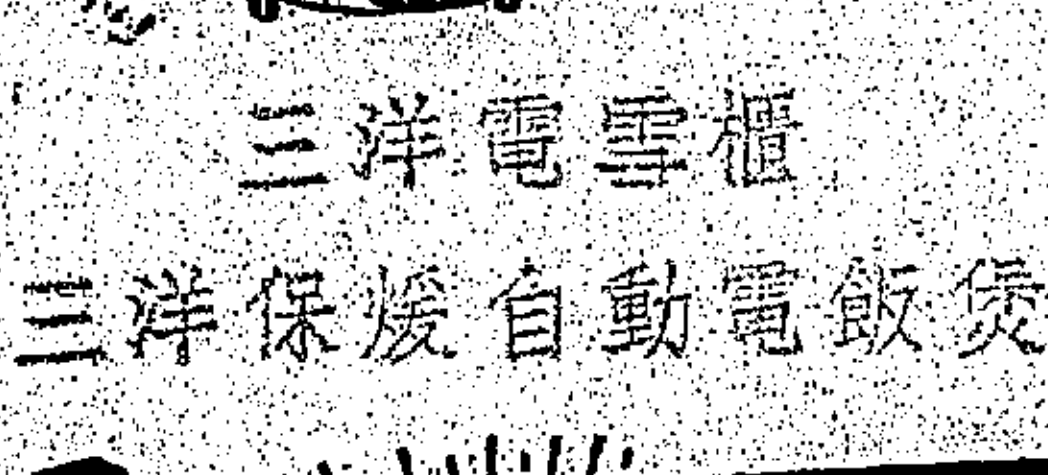 三洋電雪櫃
三洋保煖自動電飯煲